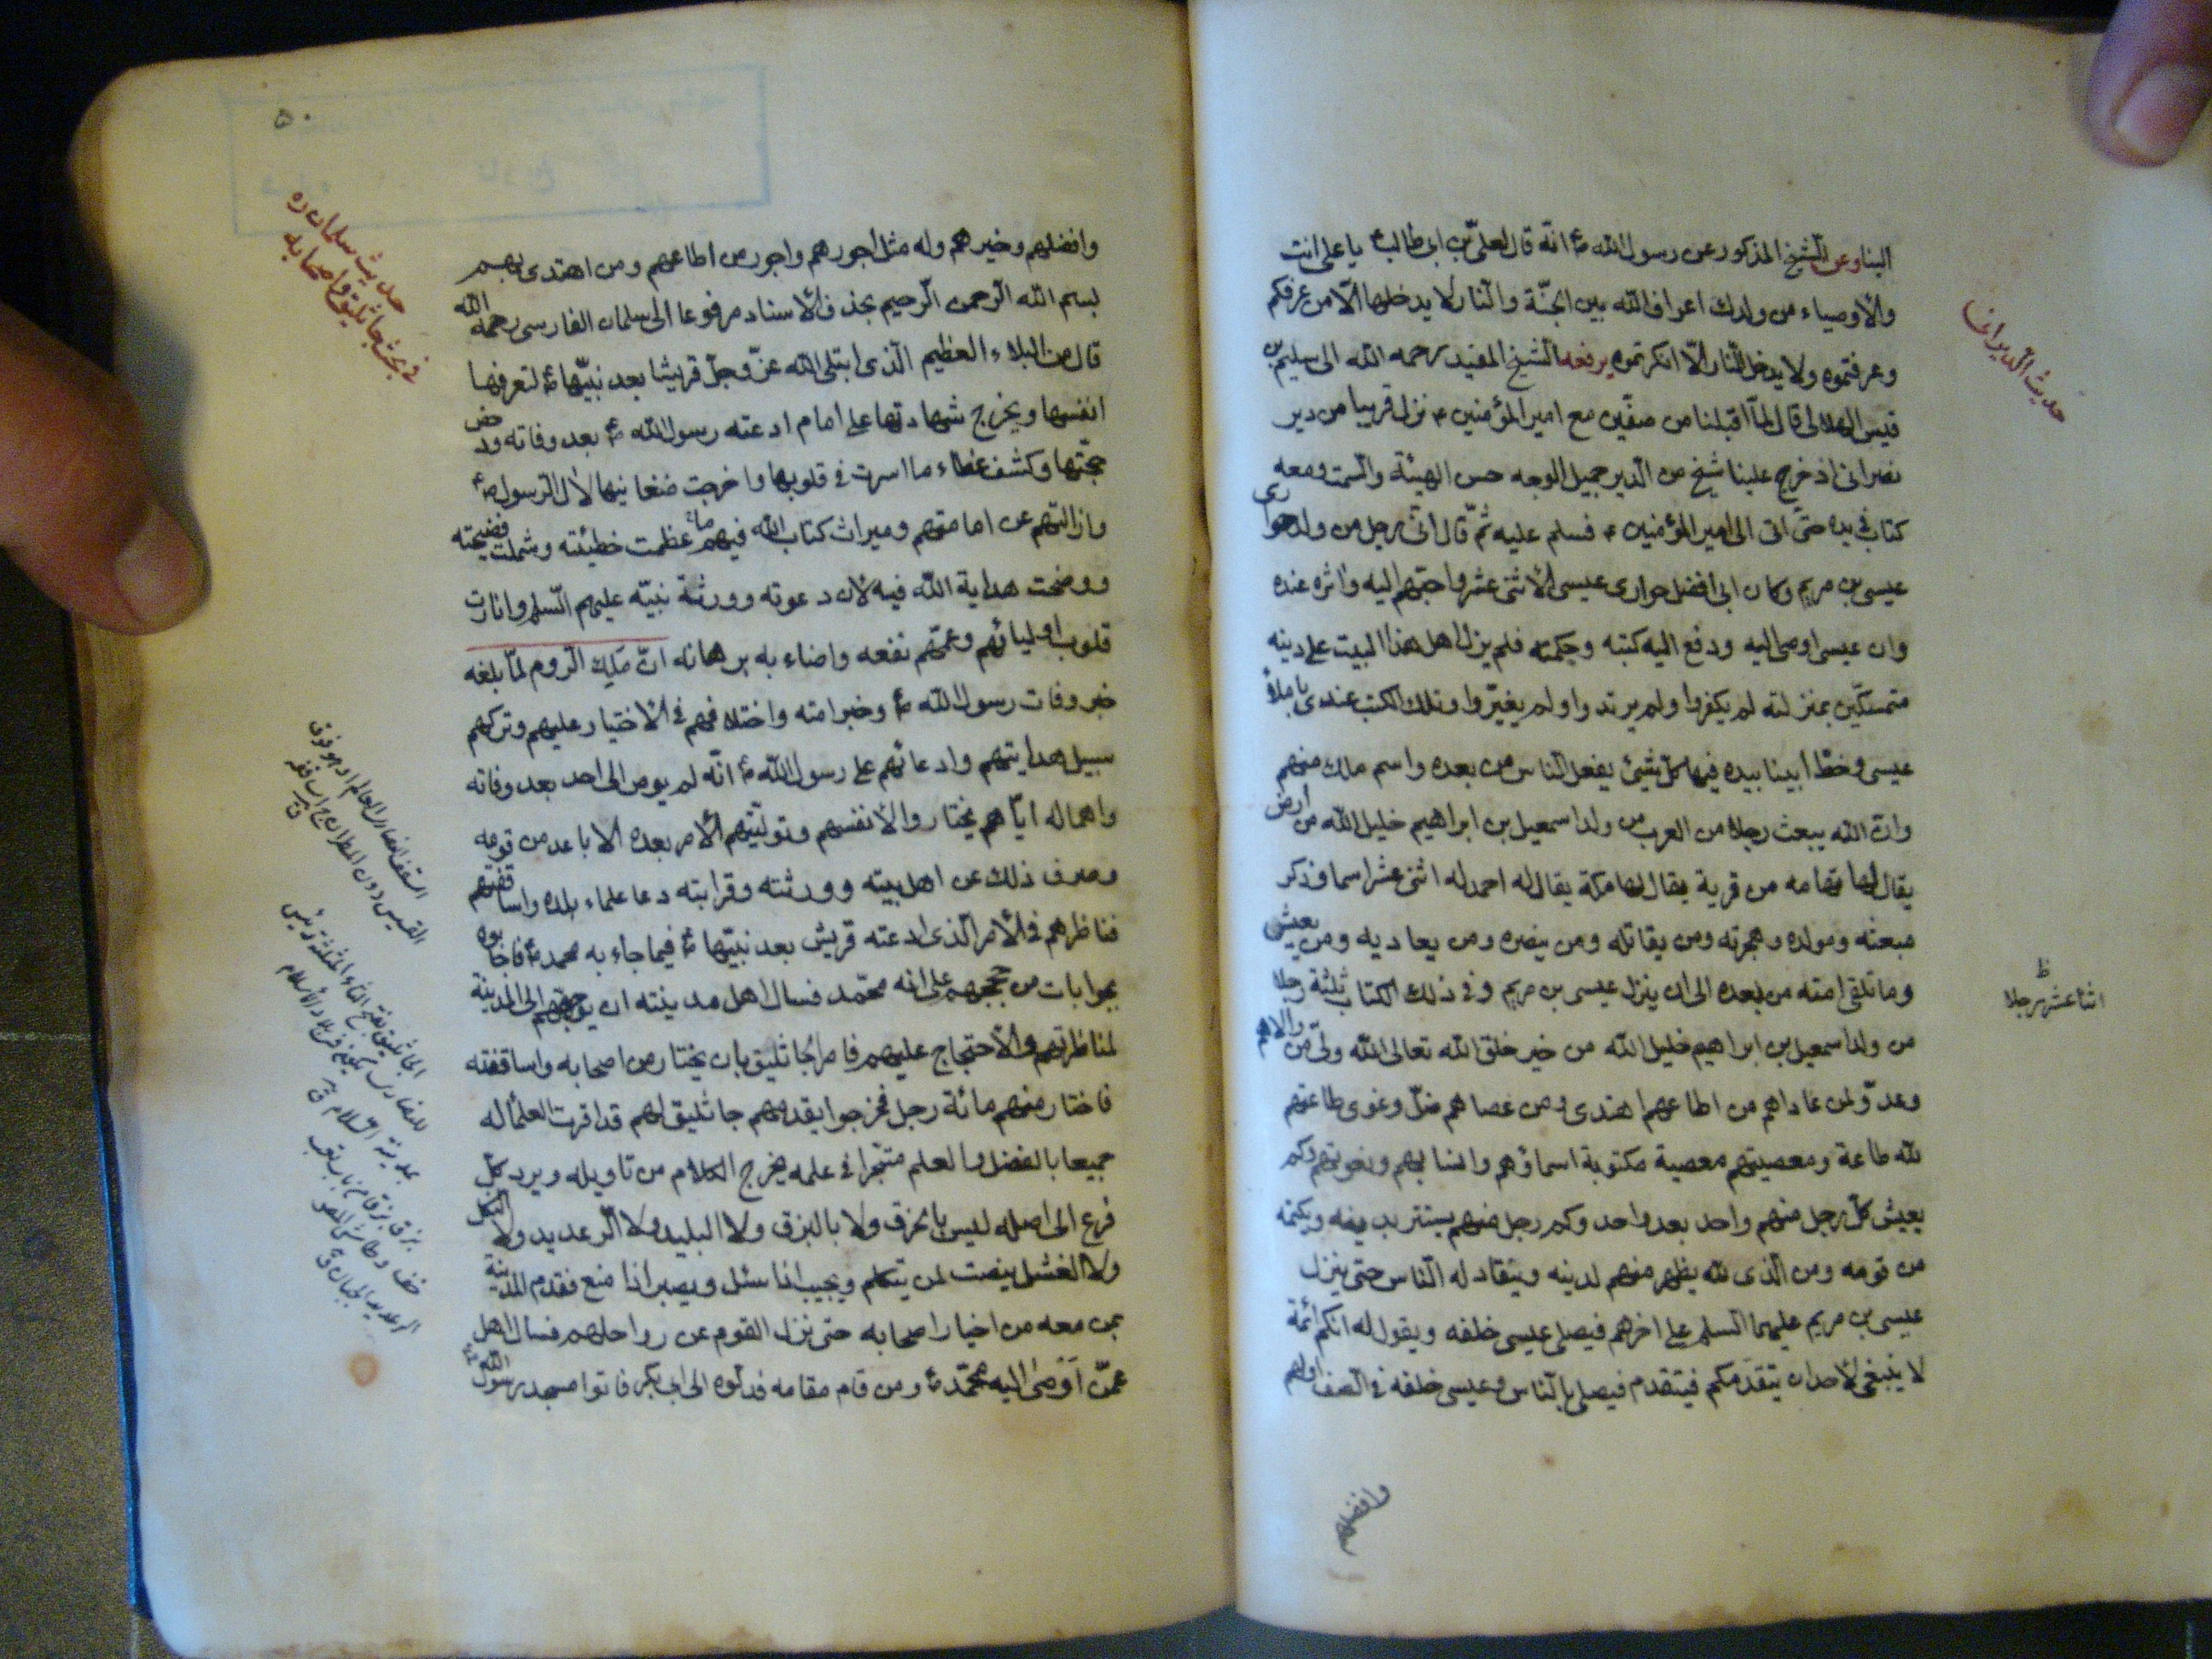 البنا وعن الشيخ المذكور عن رسول الله ص انه قال لعلى بن ابى طالب ع يا على انت
والاوصياء من ولدك اعراف الله بين الجنّة والنار لا يدخلها الّا من عرفكم
وعرفتموه ولا يدخل النار الّا من انكرتموه يرفعه الشيخ المفيد رحمه الله الى سليم بن
قيس الهلالى قال لمّا اقبلنا من صفّين مع امير المؤمنين ع نزل قريبا من دير
نصرانى اذ خرج علينا شيخ من الدير جميل الوجه حسن الهيئة والسمت ومعه
كتاب فى يده حتى اتى الى امير المؤمنين ع فسلم عليه ثمّ قال انى رجل من ولد حوارى
عيسى بن مريم وكان ابى افضل حوارى عيسى الاثنى عشر واحبّهم اليه واثره عنده
وان عيسى اوصى اليه ودفع اليه كتبه وحكمته فلم يزل اهل هذا البيت على دينه
متمسكين بمنزلته لم يكفروا ولم يرتدوا ولم يغيّروا وتلك الكتب عندى باملاء
عيسى وخطّ ابينا بيده فيها كلّ شيئ يفعل الناس من بعده واسم ملك منهم
وانّ الله يبعث رجلا من العرب من ولد اسمعيل بن ابراهيم خليل الله من أرض
يقال لها تهامه من قرية يقال لها مكة يقال له احمد له اثنى عشر اسما وذكر
مبعثه ومولده وهجرته ومن يقاتله ومن ينصره ومن يعاديه ومن يعيش
وما تلقى امته من بعده الى ان ينزل عيسى بن مريم وفى ذلك الكتاب ثلثة رجلا
من ولد اسمعيل بن ابراهيم خليل الله من خير خلق الله تعالى الله ولىّ من والاهم
وعدوّ لمن عاداهم من اطاعهم اهتدى ومن عصاهم ضلّ وغوى طاعتهم
لله طاعة ومعصيتهم معصية مكتوبة اسماؤهم وانسابهم ونعوتهم وكم
يعيش كلّ رجل منهم واحد بعد واحد وكم رجل منهم يستتر بدينه ويكتمه
من قومه ومن الذى لله يظهر منهم لدينه وينقاد له الناس حتى ينزل
عيسى بن مريم عليهما السلم على اخرهم فيصلى عيسى خلفه ويقول له انكم ائمّة
لا ينبغى لاحد ان يتقدّمكم فيتقدم فيصلى بالناس وعيسى خلفه فى الصف اولهم
وافضلهم
حديث الديرانى
ظ
اثنا عشر رجلا
٥٠
وافضلهم وخيرهم وله مثل اجورهم واجور من اطاعهم ومن اهتدى بهم
بسم الله الرحمن الرحيم بحذف الاسناد مرفوعا الى سلمان الفارسى رحمه الله
قال من البلاء العظيم الّذى ابتلى الله عزّ وجلّ قريشا بعد نبيّها ص لتعرفها
انفسها ويخرج شهادتها على امام ادعته رسول الله ص بعد وفاته ودحض
حجّتها وكشف غطاء ما اسرت فى قلوبها واخرجت ضغاينها لال الرسول ص
وازالتهم عن امامتهم وميراث كتاب الله فيهم ما عظمت خطيئته وشملت فضيحته
ووضحت هداية الله فيه لان دعوته وورثة نبيّه عليهم السلم وانارت
قلوب اوليائهم وعمّهم نفعه واضاء به برهانه انّ ملك الروم لمّا بلغه
خبر وفات رسول الله ص وخبر امته واختلافهم فى الاختيار عليهم وتركهم
سبيل هدايتهم وادعائهم على رسول الله ص انّه لم يوص الى احد بعد وفاته
واهماله ايّاهم يختاروا لانفسهم وتوليتهم الامر بعده الاباعد من قومه
وصرف ذلك عن اهل بيته وورثته وقرابته دعا علماء بلده واساقفتهم
فناظرهم فى الامر الّذى ادعته قريش بعد نبيّها ص فيما جاء به محمد ص فاجابوه
بجوابات من حججهم على انه محمّد فسال اهل مدينته ان يوجّههم الى المدينة
لمناظرتهم والاحتجاج عليهم فامر جاثليق بان يختار من اصحابه واساقفته
فاختار منهم مائة رجل فخرجوا يقدمهم جاثليق لهم قد اقرت العلماء له
جميعا بالفضل والعلم متبحّرا فى علمه يخرج الكلام من تاويله ويرد كلّ
فرع الى اصله ليس بالخرق ولا بالنزق ولا البليد ولا الرعديد ولا النكل
ولا الفشل ينصت لمن يتكلم ويجيب اذا سئل ويصبر اذا منع فقدم المدينة
بمن معه من اخيار اصحابه حتى نزل القوم عن رواحلهم فسال اهل
عمّن أوصى اليه محمّد ص ومن قام مقامه فدلّوه الى ابى بكر فاتوا مسجد رسول الله
حديث سلمان ره
فى بحث جاثليق واصحابه